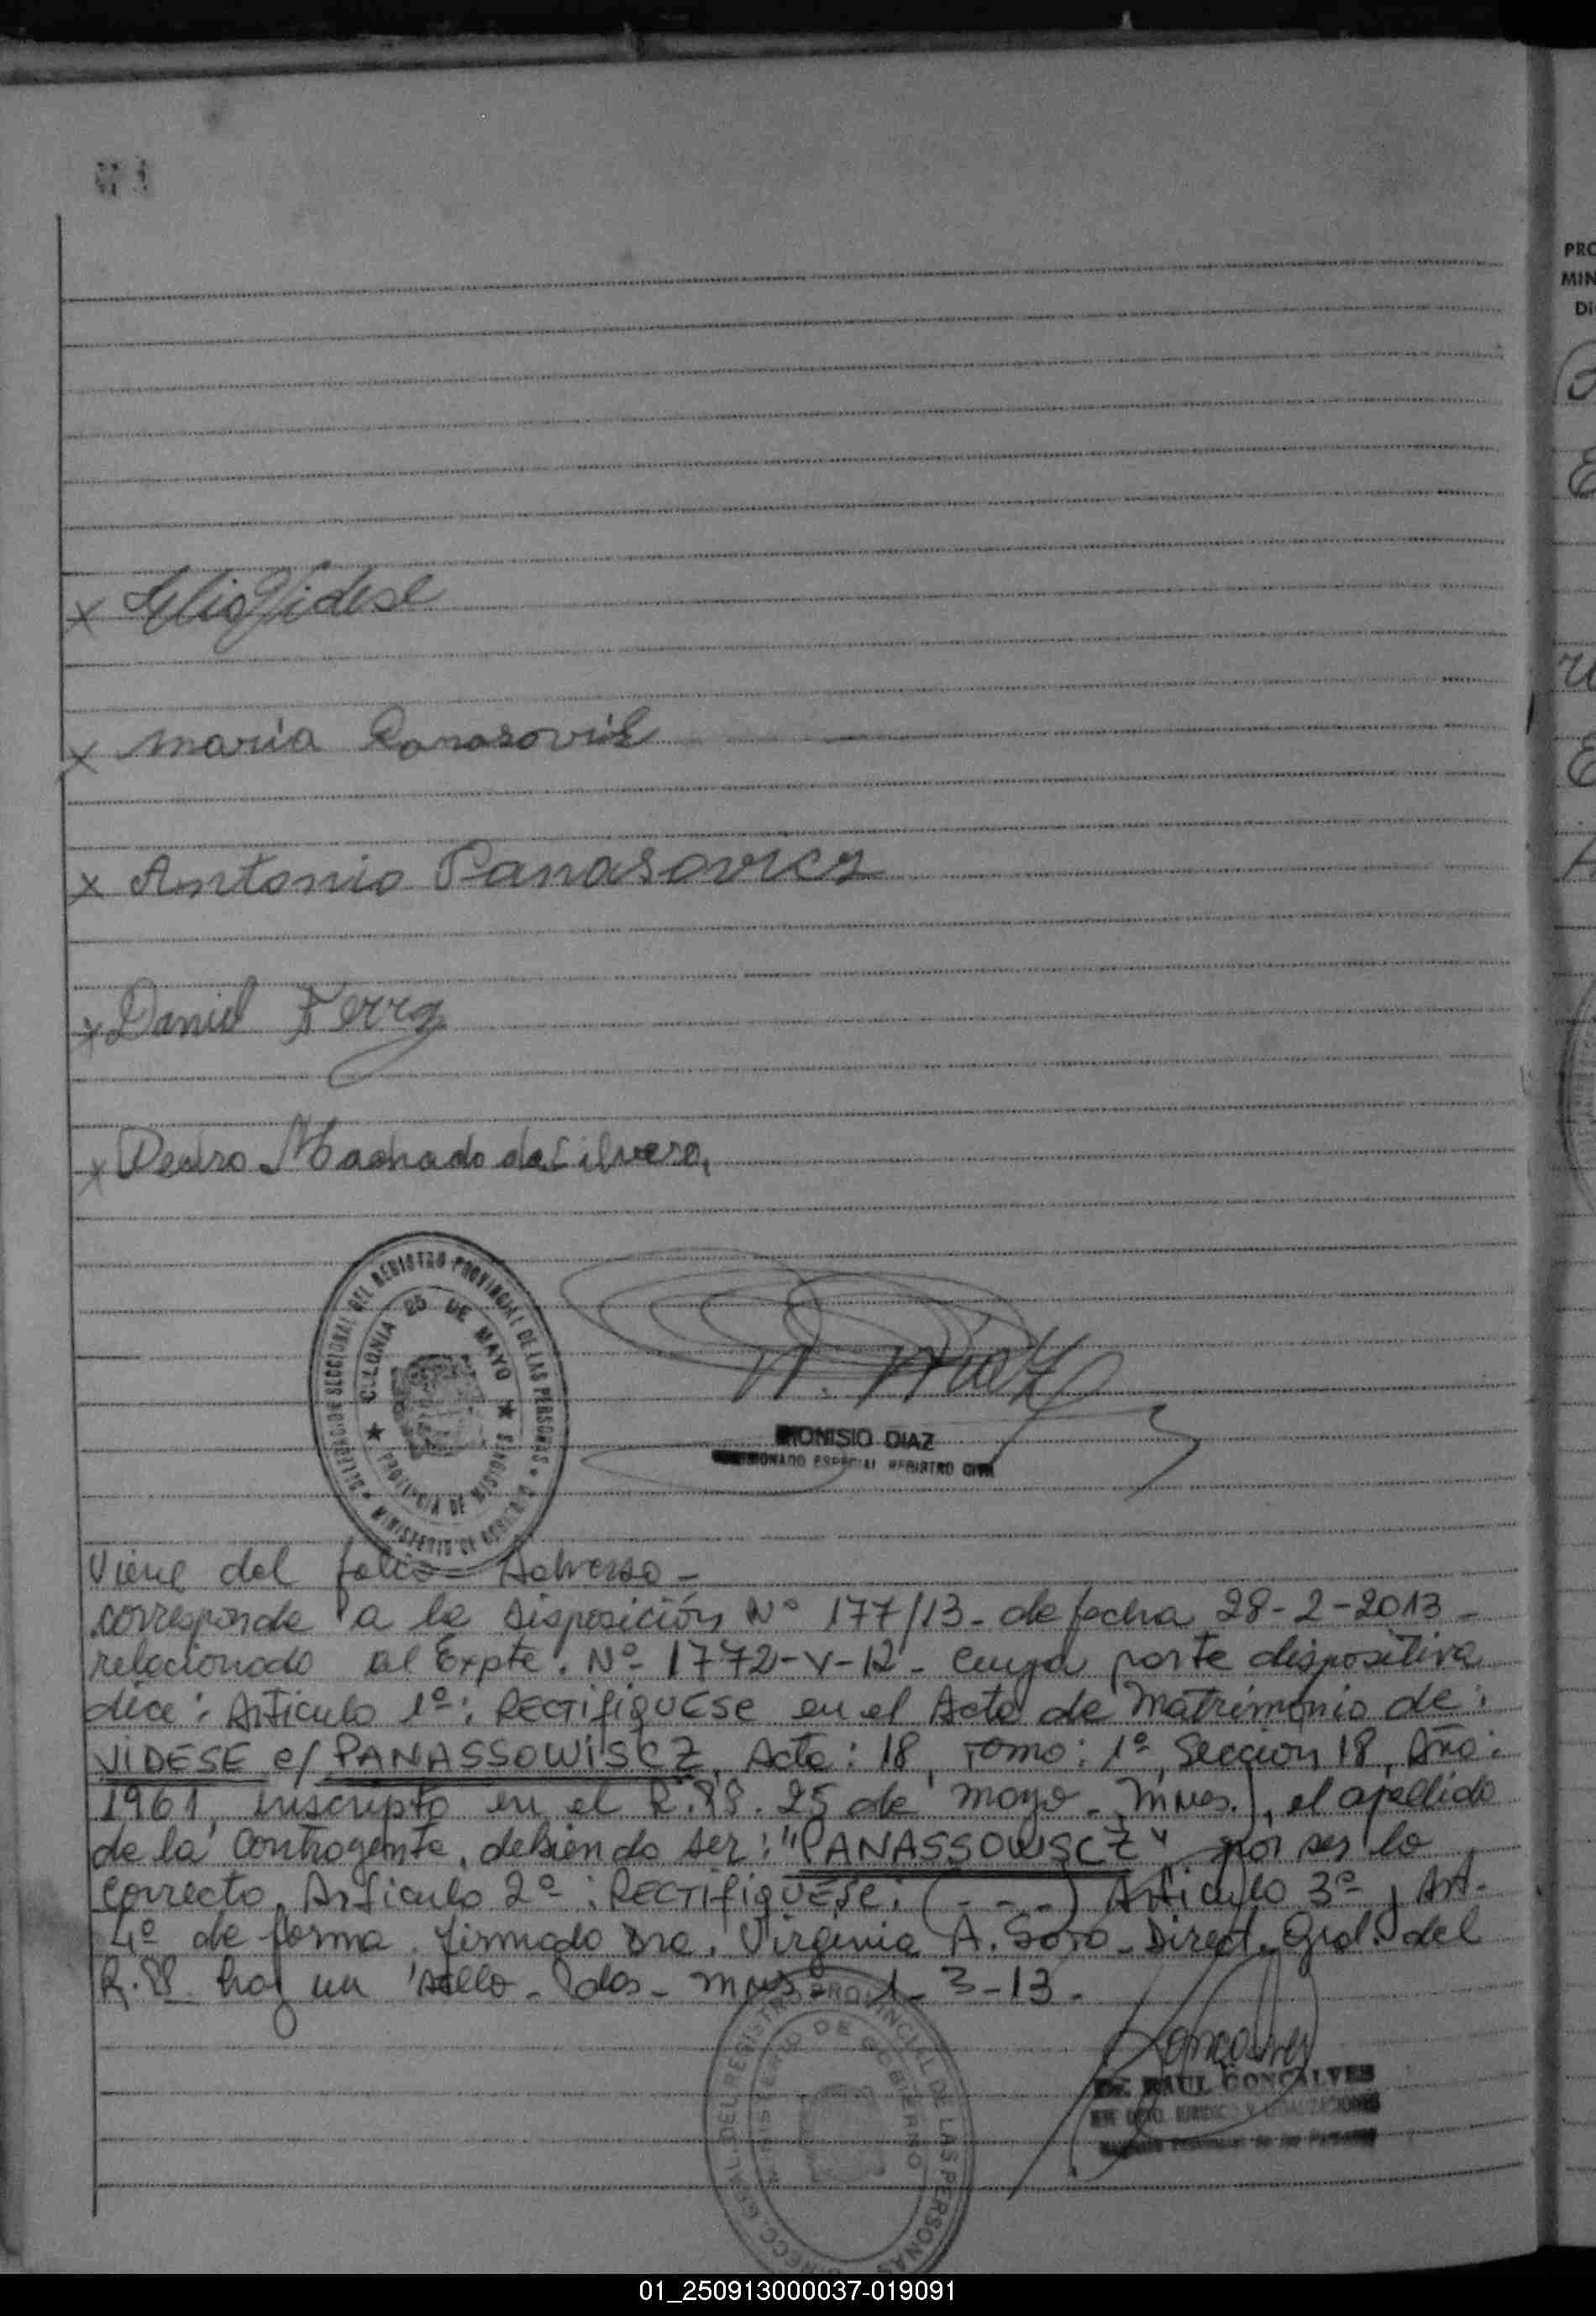 x Elio Videse
x maria Panasovik
x Antonio Panasovicz
x Daniel Ferra
x Pedro Machado da Silvero,
DELEGACION SECCIONAL DEL REGISTRO PROVINCIAL DE LAS PERSONAS
COLONIA 25 DE MAYO
PROVINCIA DE MISIONES
MINISTERIO DE GOBIERNO
D. Diaz
DIONISIO DIAZ
ESPECIAL REGISTRO CIVIL
Viene del folio Adverso -
corresponde a la Disposición Nº 177/13 - de fecha 28-2-2013 -
relacionado al Expte. Nº 1772-V-12 - cuya parte dispositiva
dice: Articulo 1º: RECTIFIQUESE en el Acta de Matrimonio de:
VIDESE c/ PANASSOWISCZ, Acta: 18, Tomo: 1º, Seccion 18, Año:
1961, inscripto en el R.PP. 25 de mayo - Mnes.), el apellido
de la Contrayente, debiendo ser: "PANASSOWSCZ" por ser lo
correcto. Articulo 2º: RECTIFIQUESE: (- - -) Articulo 3º, Art.
4º de forma. firmado Dra. Virginia A. Soto - Direct. Gral. del
R.PP. hay un sello - Pdas - Mnes 1-3-13.
DIRECC. GRAL. DEL REGISTRO PROVINCIAL DE LAS PERSONAS
MINISTERIO DE GOBIERNO
Goncalves
RAUL GONCALVES
DPTO. JURIDICO Y LEGALIZACIONES
Provincial de las Personas
PRO
MIN
Di
01_250913000037-019091